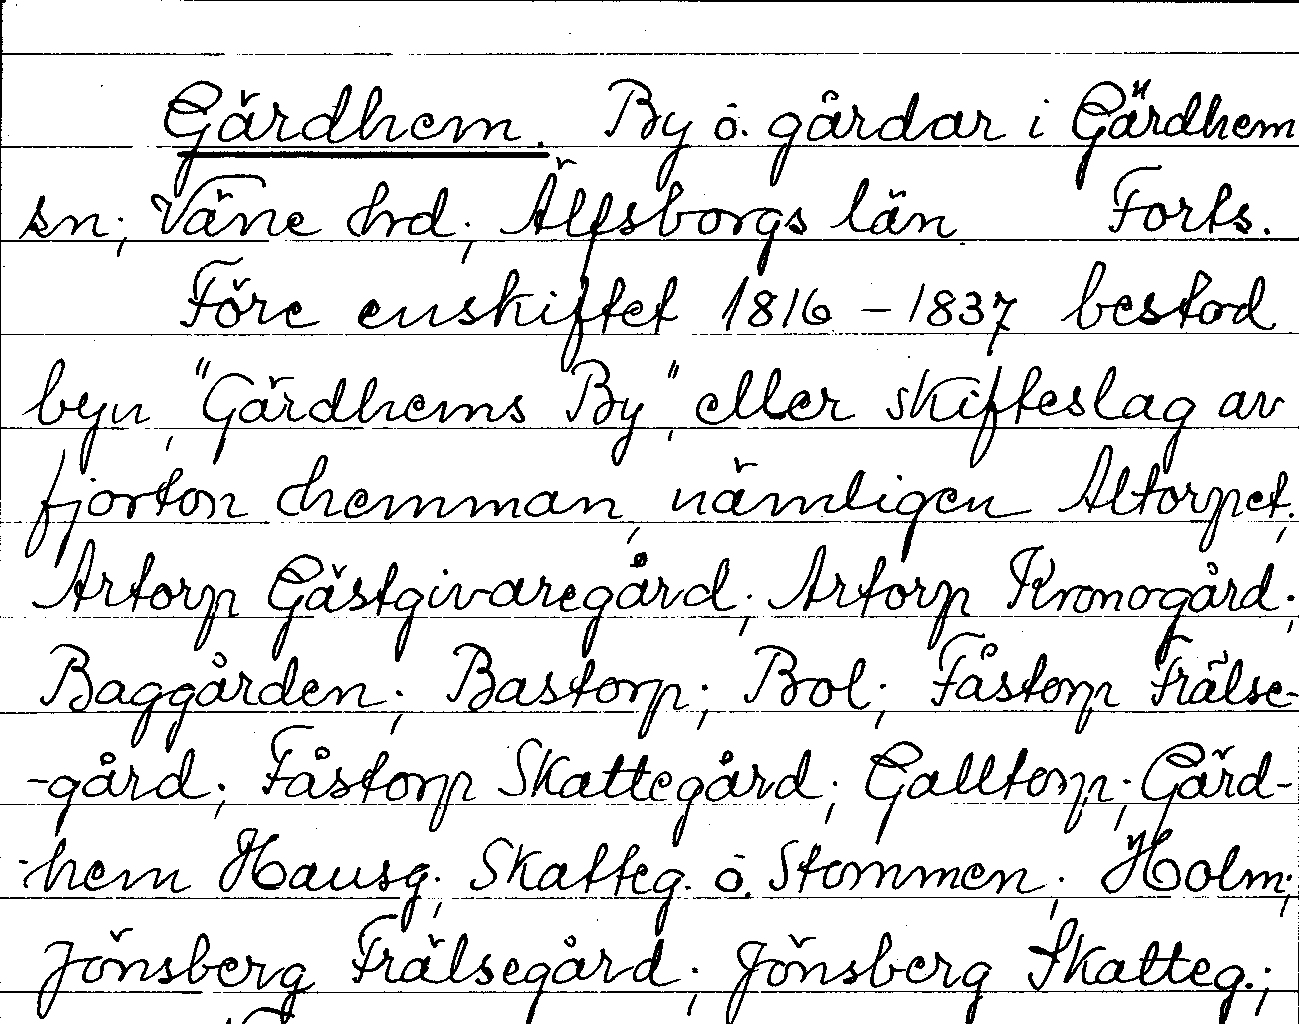 Gärdhem. By o. gårdar i Gärdhem
sn; Väne hrd; Älfsborgs län Forts.
Före enskiftet 1816 – 1837 bestod
byn, "Gärdhems By", eller skifteslag av
fjorton hemman, nämligen Altorpet;
Artorp Gästgivaregård; Artorp Kronogård;
Baggården; Bastorp; Bol; Fåstorp Frälse-
-gård; Fåstorp Skattegård; Galltorp; Gärd-
-hem Hausg; Skatteg. o. Stommen; Holm;
Jönsberg Frälsegård; Jönsberg Skatteg.;